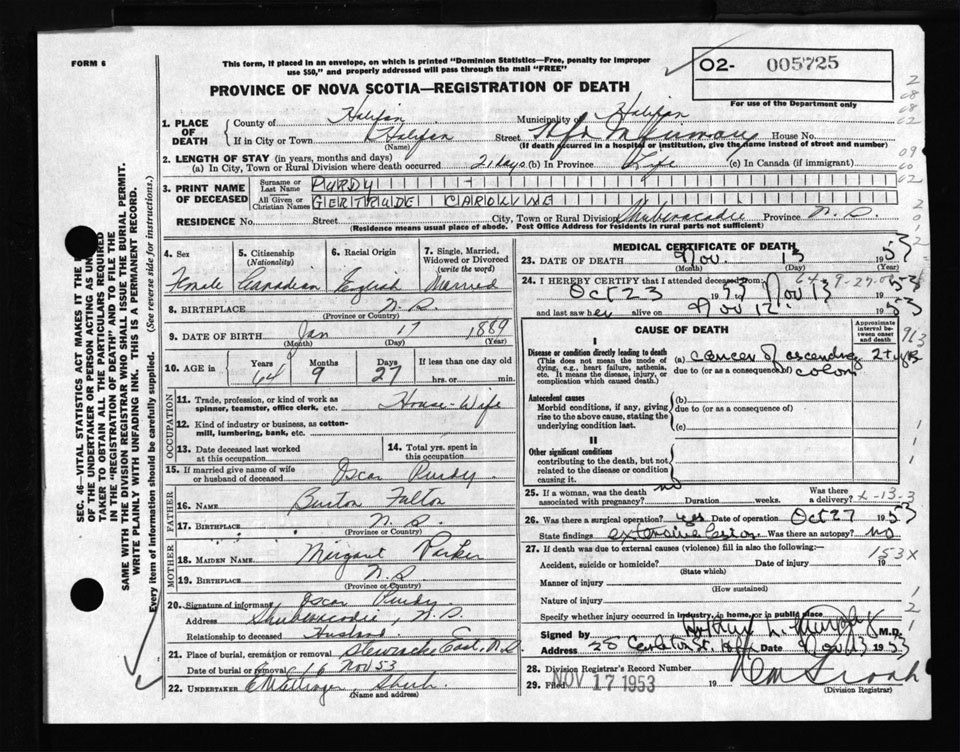 FORM 6
This form, if placed in an envelope, on which is printed "Dominion Statistics—Free, penalty for improper
use $50," and properly addressed will pass through the mail "FREE"
O2- 005725
For use of the Department only
PROVINCE OF NOVA SCOTIA—REGISTRATION OF DEATH
1. PLACE OF DEATH
County of Halifax Municipality of Halifax
If in City or Town Halifax Street House No.
(Name) (If death occurred in a hospital or institution, give the name instead of street and number)
2. LENGTH OF STAY (in years, months and days)
(a) In City, Town or Rural Division where death occurred 21 days (b) In Province Life (c) In Canada (if immigrant)
3. PRINT NAME OF DECEASED
Surname or Last Name PURDY
All Given or Christian Names GERTRUDE CAROLINE
RESIDENCE No. Street City, Town or Rural Division Shubenacadie Province N.S.
(Residence means usual place of abode. Post Office Address for residents in rural parts not sufficient)
4. Sex Female
5. Citizenship (Nationality) Canadian
6. Racial Origin English
7. Single, Married, Widowed or Divorced (write the word) Married
8. BIRTHPLACE N.S.
(Province or Country)
9. DATE OF BIRTH Jan 17 1889
(Month) (Day) (Year)
10. AGE in Years 64 Months 9 Days 27 If less than one day old
hrs. or min.
OCCUPATION
11. Trade, profession, or kind of work as
spinner, teamster, office clerk, etc. House-Wife
12. Kind of industry or business, as cotton-
mill, lumbering, bank, etc.
13. Date deceased last worked
at this occupation
14. Total yrs. spent in
this occupation
15. If married give name of wife
or husband of deceased Oscar Purdy
FATHER
16. NAME Burton
17. BIRTHPLACE N.S.
MOTHER
18. MAIDEN NAME Margaret Parker
19. BIRTHPLACE N.S.
(Province or Country)
20. Signature of informant Oscar Purdy
Address Shubenacadie, N.S.
Relationship to deceased Husband
21. Place of burial, cremation or removal Stewiacke East, N.S.
Date of burial or removal 16 Nov 53
22. UNDERTAKER
(Name and address)
MEDICAL CERTIFICATE OF DEATH
23. DATE OF DEATH Nov. 13 1953
(Month) (Day) (Year)
24. I HEREBY CERTIFY that I attended deceased from
Oct 23 19 Nov 13 1953
and last saw her alive on Nov 12 1953
CAUSE OF DEATH
Approximate interval between onset and death
I
Disease or condition directly leading to death
This does not mean the mode of
dying, e.g., heart failure, asthenia,
etc. It means the disease, injury, or
complication which caused death.)
(a) cancer of ascending
due to (or as a consequence of) colon
Antecedent causes
Morbid conditions, if any, giving
rise to the above cause, stating the
underlying condition last.
(b)
due to (or as a consequence of)
(c)
II
Other significant conditions
contributing to the death, but not
related to the disease or condition
causing it.
25. If a woman, was the death
associated with pregnancy? no Duration weeks. Was there
a delivery?
26. Was there a surgical operation? yes Date of operation Oct 27 1953
State findings extensive Was there an autopsy? no
27. If death was due to external causes (violence) fill in also the following:—
153X
Accident, suicide or homicide? Date of injury 19
(State which)
Manner of injury
(How sustained)
Nature of injury
Specify whether injury occurred in industry, in home, or in public place
Signed by Arthur L. Murphy M.D.
Address 28 Carleton St. Hfx Date Nov 13 1953
28. Division Registrar's Record Number
29. Filed NOV 17 1953 19
(Division Registrar)
SEC. 46—VITAL STATISTICS ACT MAKES IT THE
OF THE UNDERTAKER OR PERSON ACTING AS
TAKER TO OBTAIN ALL THE PARTICULARS REQUIRED
IN THE "REGISTRATION OF DEATH" AND TO FILE THE
SAME WITH THE DIVISION REGISTRAR WHO SHALL ISSUE THE BURIAL PERMIT.
WRITE PLAINLY WITH UNFADING INK. THIS IS A PERMANENT RECORD.
Every item of information should be carefully supplied. (See reverse side for instructions.)